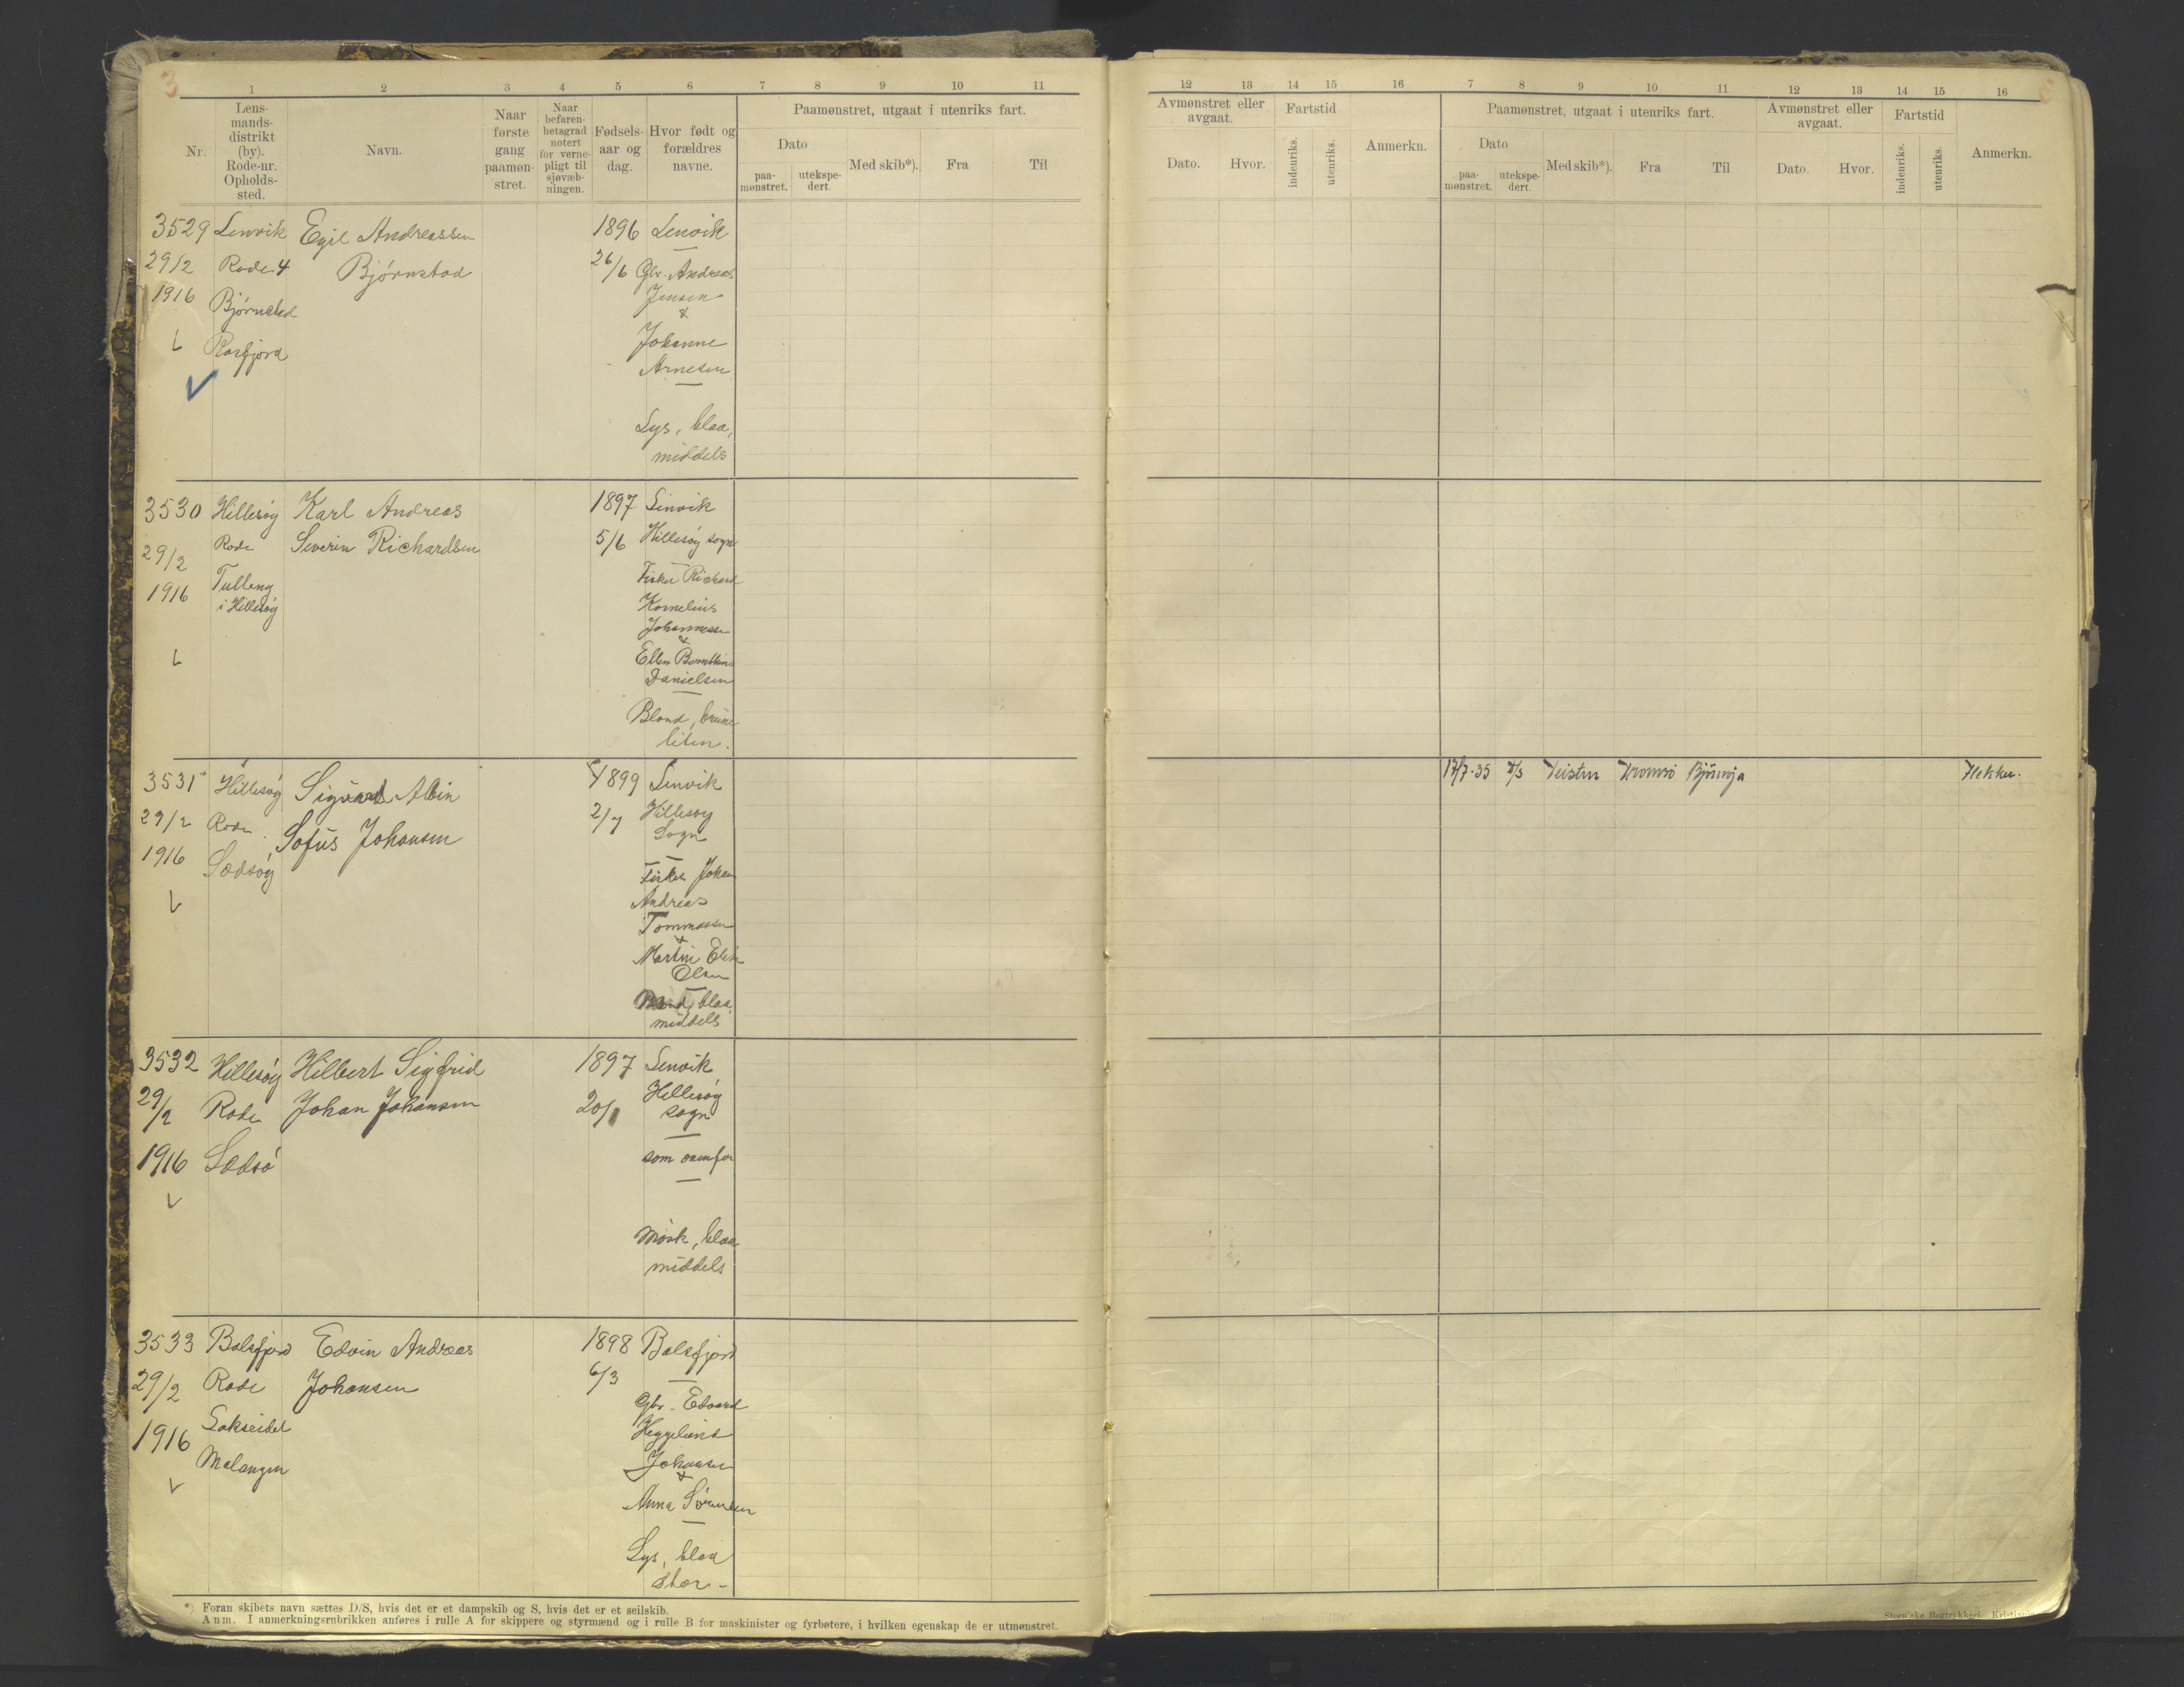 3
1 2 3 4 5 6 7 8 9 10 11
Nr.
Lens-
mands-
distrikt
(by).
Rode-nr.
Opholds-
sted.
Navn.
Naar
første
gang
paamøn-
stret.
Naar
befaren-
hetsgrad
notert
for verne-
pligt til
sjøvæb-
ningen.
Fødsels-
aar og
dag.
Hvor født og
forældres
navne.
Paamønstret, utgaat i utenriks fart.
Dato
paa-
mønstret.
utekspe-
dert.
Med skib*).
Fra
Til
12 13 14 15 16 7 8 9 10 11 12 13 14 15 16
Avmønstret eller
avgaat.
Dato.
Hvor.
Fartstid
indenriks.
utenriks.
Anmerkn.
Paamønstret, utgaat i utenriks fart.
Dato
paa-
mønstret.
utekspe-
dert.
Med skib*).
Fra
Til
Avmønstret eller
avgaat.
Dato.
Hvor.
Fartstid
indenriks.
utenriks.
Anmerkn.
3529
29/2
1916
Lenvik
Rode 4
Bjørnstad
Egil Andreassen
Bjørnstad
1896
26/6
Lenvik
Gbr. Andreas
Jensen
&
Johanne
Arnesen
Lys, blaa,
middels
3530
29/2
1916
Hillesøy
Rode
Tulleng
i Hillesøy
Karl Andreas
Severin Richardsen
1897
5/6
Lenvik
Hillesøy sogn
Fisker Richard
Kornelius
Johannessen
&
Ellen
Danielsen
Blond, brune
liten.
3531
29/2
1916
Hillesøy
Rode
Sigvart Albin
Sofus Johansen
1899
2/7
Lenvik
Hillesøy
Sogn
Fisker Johan
Andreas
Tommassen
&
Martin
Olsen
Blond, blaa,
middels
17/7-35
Tromsø
3532
29/2
1916
Hillesøy
Rode
Hilbert Sigfrid
Johan Johansen
1897
Lenvik
Hillesøy
sogn
som ovenfor
Mørk, blaa
middels
3533
29/2
1916
Balsfjord
Rode
Lakseidet
Malangen
Edvin Andreas
Johansen
1898
6/3
Balsfjord
Gbr. Edvard
Heggelund
Johansen
&
Anna Sørensen
Lys, blaa
stor-
*) Foran skibets navn sættes D/S, hvis det er et dampskib og S, hvis det er et seilskib.
Anm. I anmerkningsrubrikken anføres i rulle A for skippere og styrmænd og i rulle B for maskinister og fyrbøtere, i hvilken egenskap de er utmønstret.
Steen'ske Bogtrykkeri. Kristiania